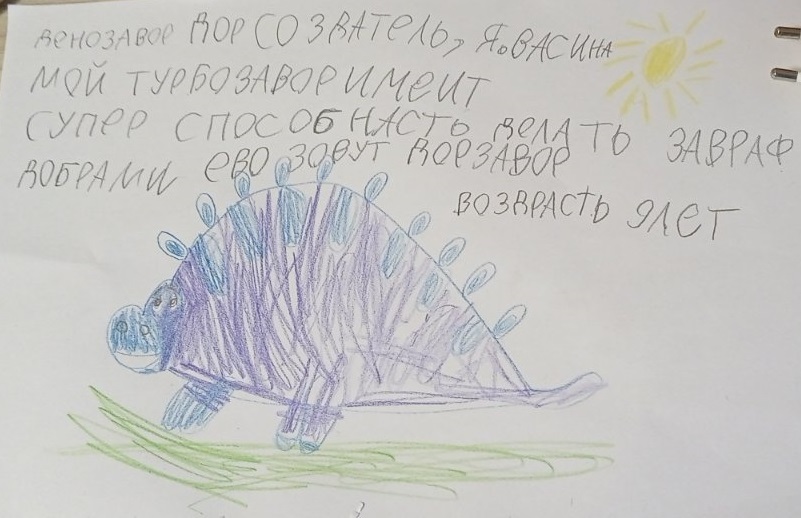 ДЕНОЗАВОР ДОРСОЗВАТЕЛЬ, Я.ВАСИНА
МОЙ ТУРБОЗАВОР ИМЕИТ
СУПЕР СПОСОБНАСТЬ ДЕЛАТЬ ЗАВРАФ
ДОБРАМИ ЕВО ЗОВУТ ДОРЗАВОР
ВОЗДРАСТЬ 9ЛЕТ